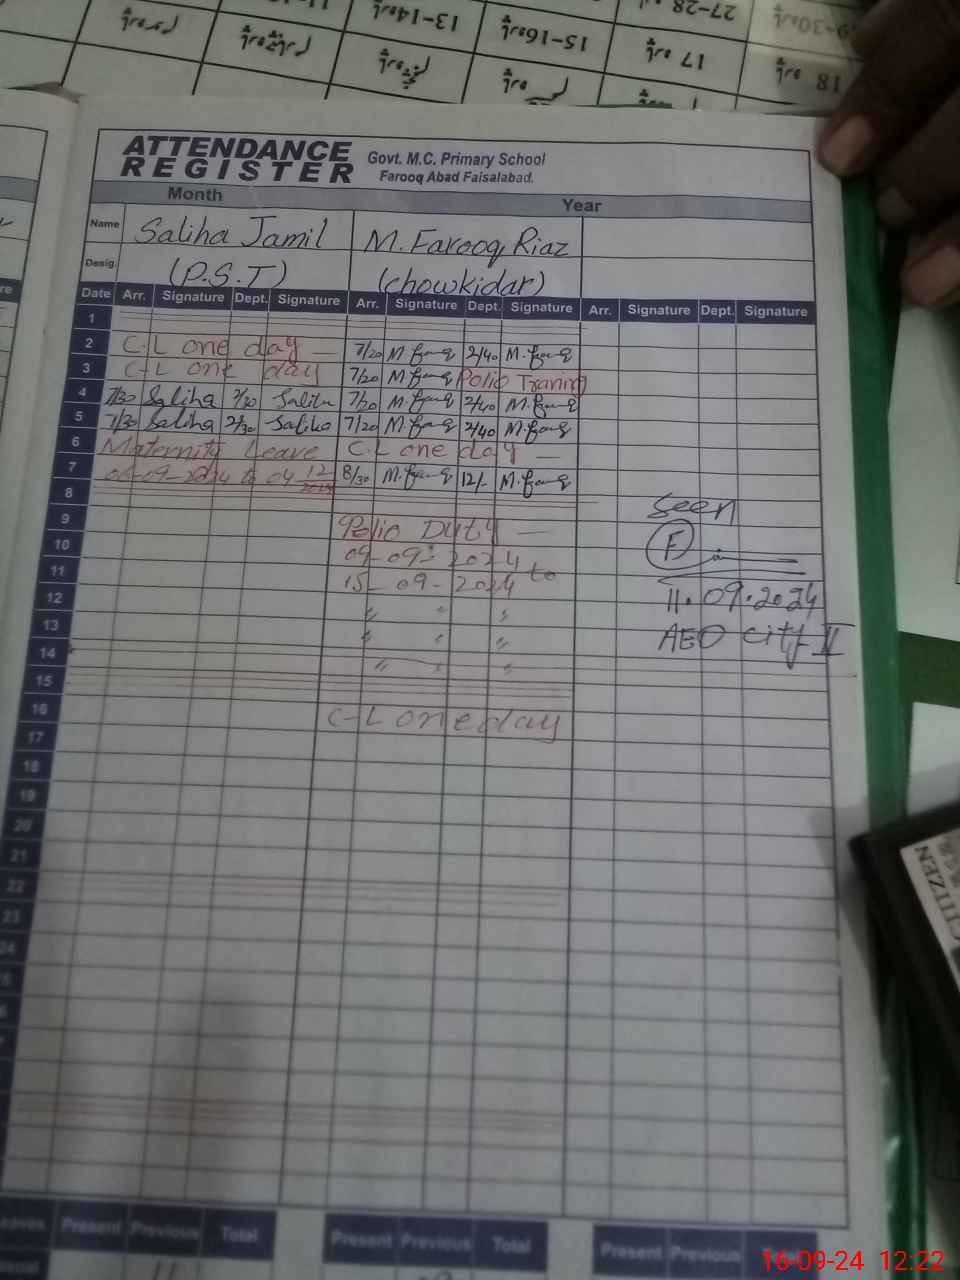 13-14
15-16
27-28
17
18
ATTENDANCE
REGISTER
Govt. M.C. Primary School
Farooq Abad Faisalabad.
Month Year
Name Saliha Jamil M. Farooq Riaz
Desig. (P.S.T) (chowkidar)
Date Arr. Signature Dept. Signature Arr. Signature Dept. Signature Arr. Signature Dept. Signature
1
2 C-L one day — 7/20 M. Farooq 2/40 M. Farooq
3 C-L one day 7/20 M. Farooq Polio Traning
4 7/30 Saliha 2/30 Saliha 7/20 M. Farooq 2/40 M. Farooq
5 7/30 Saliha 2/30 Saliha 7/20 M. Farooq 2/40 M. Farooq
6 Maternity Leave C-L one day —
7 06-09-2024 to 04 12 8/30 M. Farooq 12/- M. Farooq
8
seen
9 Polio Duty —
F
10 09-09-2024
11 15-09-2024 to
12 " " "
11.09.2024
13 " " "
AEO City II
14 " " "
15
16 C-L one day
17
18
19
20
21
22
23
24
Leaves Present Previous Total Present Previous Total Present Previous
CITIZEN
16-09-24 12:22